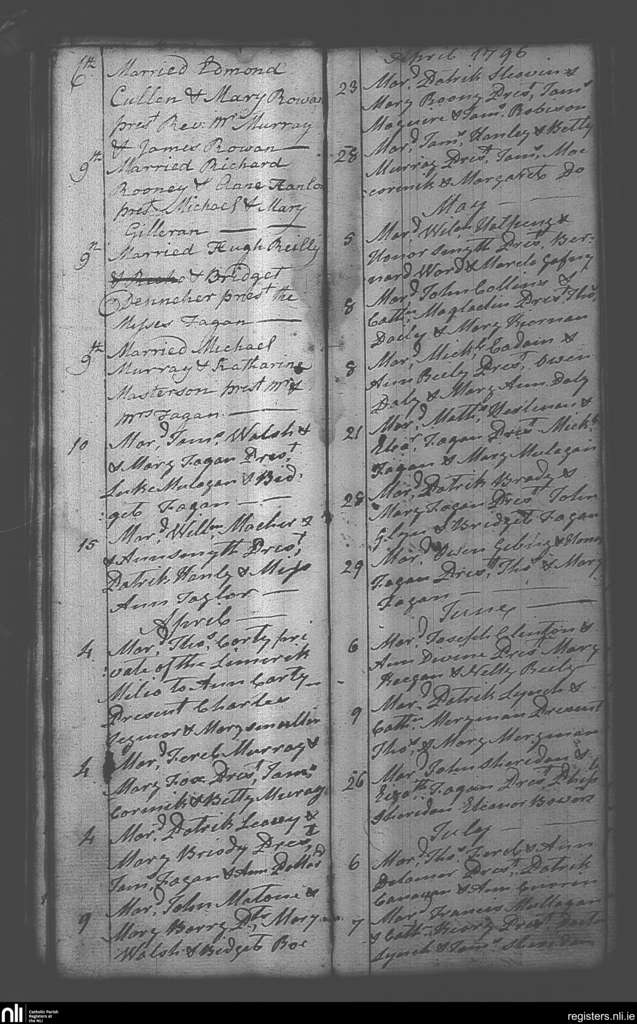 6th Married Edmond
Cullen & Mary Rowan
prest Rev. Mr Murray
& James Rowan
9th Married Richard
Rooney & Hanlo
prest Michael & Mary
Gilleran
9th Married Hugh Reilly
& Bridget
Denneher prest the
Misses Fagan
9th Married Michael
Murray & Katharine
Masterson prest Mr &
Mrs Fagan
10 Mard Jams Walsh &
& Mary Fagan Prest
Luke Mulagan & Brid
:get Fagan
15 Mard Willm Maeher &
& Ann Smyth Prest
Patrik Hanly & Miss
Ann Taylor
April
4 Mard Thos Corty pri
:vate of the Limerik
Milia to Ann Carty
Present Charles
& Mary
4 Mard Ferel Murray &
Mary Fox Prest Jams
Cormick & Betty Murray
4 Mard Patrik Leavey &
Mary Briody Prest
Jams Fagan & Ann
9 Mard John Malone &
Mary Barry Mary
Walsh & Bidget Roe
April 1796
23 Mard Patrik &
Mary Roony Prest Jams
Maguire & Jams Robinson
28 Mard Jams Hanley & Betty
Murray Prest Jams Mac
cormick & Margaret Do
May
5 Mard Willm Halpeny &
Honor Smyth Prest Ber
nard Ward &
8 Mard John Collins &
Cathn Prest Thos
Daely & Mary Kiernan
8 Mard Michl &
Ann Reely Prest Owen
Daly & Mary Ann Daly
21 Mard Matths &
Elear Fagan Prest Michl
Fagan & Mary Mulagan
28 Mard Patrik Brady &
Mary Fagan Prest John
Glyn & Bridget Fagan
29 Mard Owen &
Fagan Prest Thos & Mary
Fagan
June
6 Mard Joseph Clinton &
Ann Divine Prest Mary
Keegan & Nelly Reely
9 Mard Patrik Lynch &
Cathn Meryman Present
Thos & Mary Meryman
26 Mard John Sheridan &
Fagan Prest Philip
Sheridan Eleanor Bowers
July
6 Mard Thos Ferel & Ann
Delamer Prest Patrik
Canavan & Ann
7 Mard Frances Mullagan
& Cath Prest
Lynch & Jams Sheridan
nli
Catholic Parish
Registers at
the NLI
registers.nli.ie